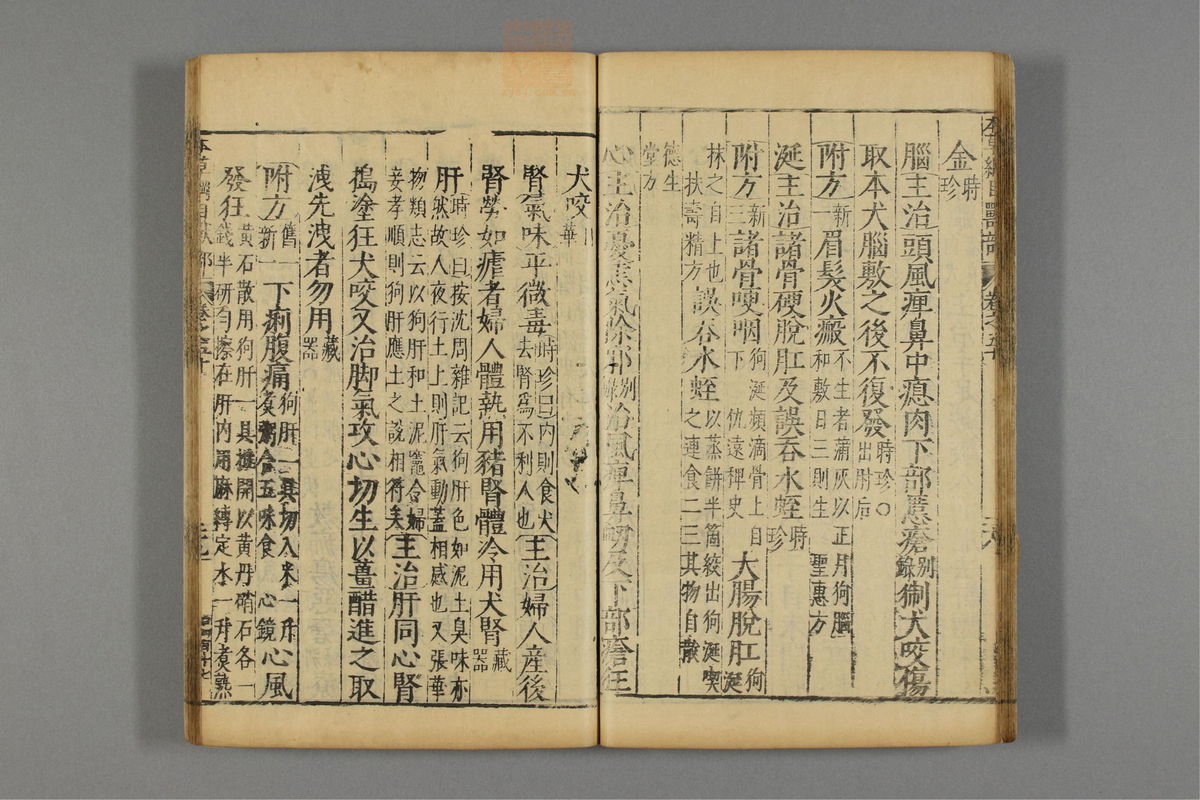 本草綱目獸部 卷之五十
金時珍
腦主治頭風痺鼻中瘜肉下部䘌瘡別錄猘犬咬傷
取本犬腦敷之後不復發時珍○出肘后
附方新一眉髮火瘢不生者蒲灰以正月狗腦和敷日三則生聖惠方
涎主治諸骨硬脫肛及誤吞水蛭時珍
附方新三諸骨哽咽狗涎頻滴骨上自下仇遠稗史大腸脫肛狗涎
抹之自上也扶壽精方誤吞水蛭以蒸餅半箇絞出狗涎喫之連食二三其物自散
德生堂方
心主治憂恚氣除邪別錄治風痺鼻衄及下部瘡狂
犬咬日華
腎氣味平微毒時珍曰內則食犬去腎為不利人也主治婦人產後
腎勞如瘧者婦人體熱用豬腎體冷用犬腎藏器
肝時珍曰按沈周雜記云狗肝色如泥土臭味亦然故人夜行土上則肝氣動蓋相感也又張華
物類志云以狗肝和土泥竈令婦妾孝順則狗肝應土之說相符矣主治肝同心腎
搗塗狂犬咬又治脚氣攻心切生以薑醋進之取
洩先洩者勿用藏器
附方舊一新一下痢腹痛狗肝一具切入米一升煮粥合五味食心鏡心風
發狂黃石散用狗肝一具批開以黃丹硝石各一錢半研勻擦在肝內用麻縛定水一升煮熟